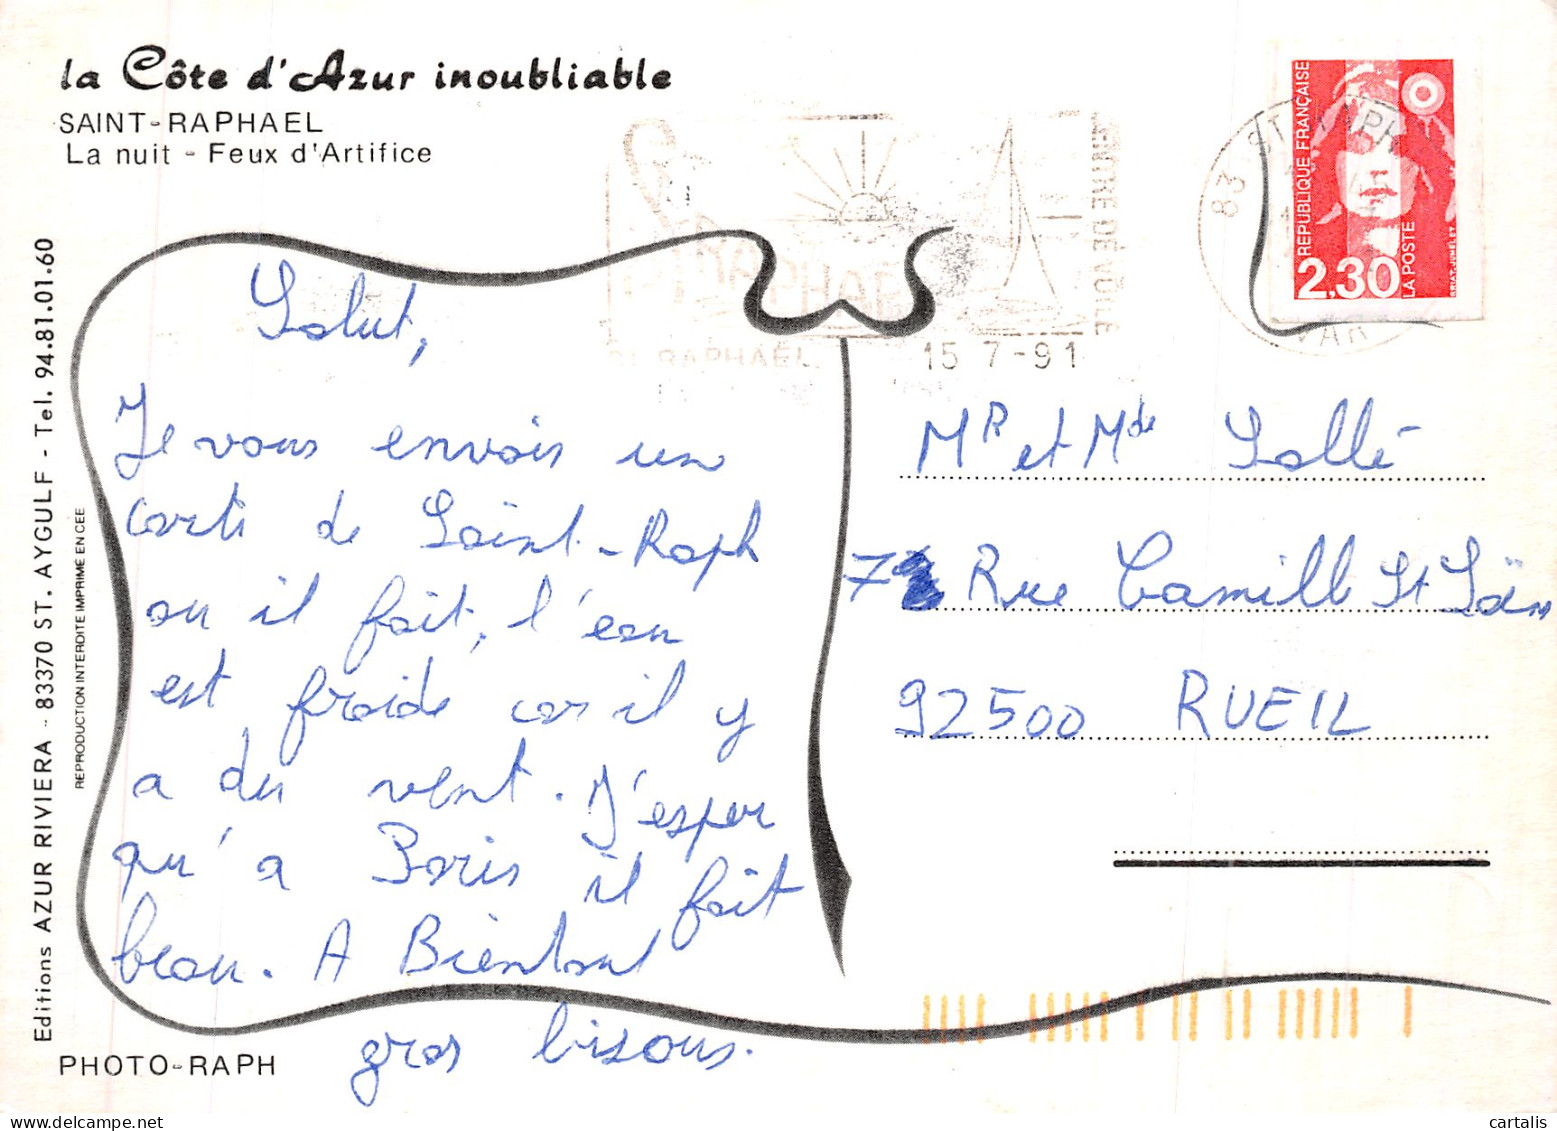 la Côte d'Azur inoubliable
SAINT-RAPHAEL
La nuit - Feux d'Artifice
Editions AZUR RIVIERA - 83370 ST. AYGULF - Tel. 94.81.01.60
REPRODUCTION INTERDITE IMPRIME EN CEE
Salut,
Je vous envois un
carte de Saint-Raph
ou il fait, l'eau
est froide car il y
a du vent. J'esper
qu'a Paris il fait
beau. A Bientout
gros bisous.
PHOTO-RAPH
ST RAPHAËL
CENTRE DE VOILE
ST RAPHAËL 15 7-91
83 ST RAPH
VAR
REPUBLIQUE FRANÇAISE
2,30
LA POSTE
BRIAT-JUMELET
MR et Mde Lallé
7 Rue Camill St Säns
92500 RUEIL
cartalis